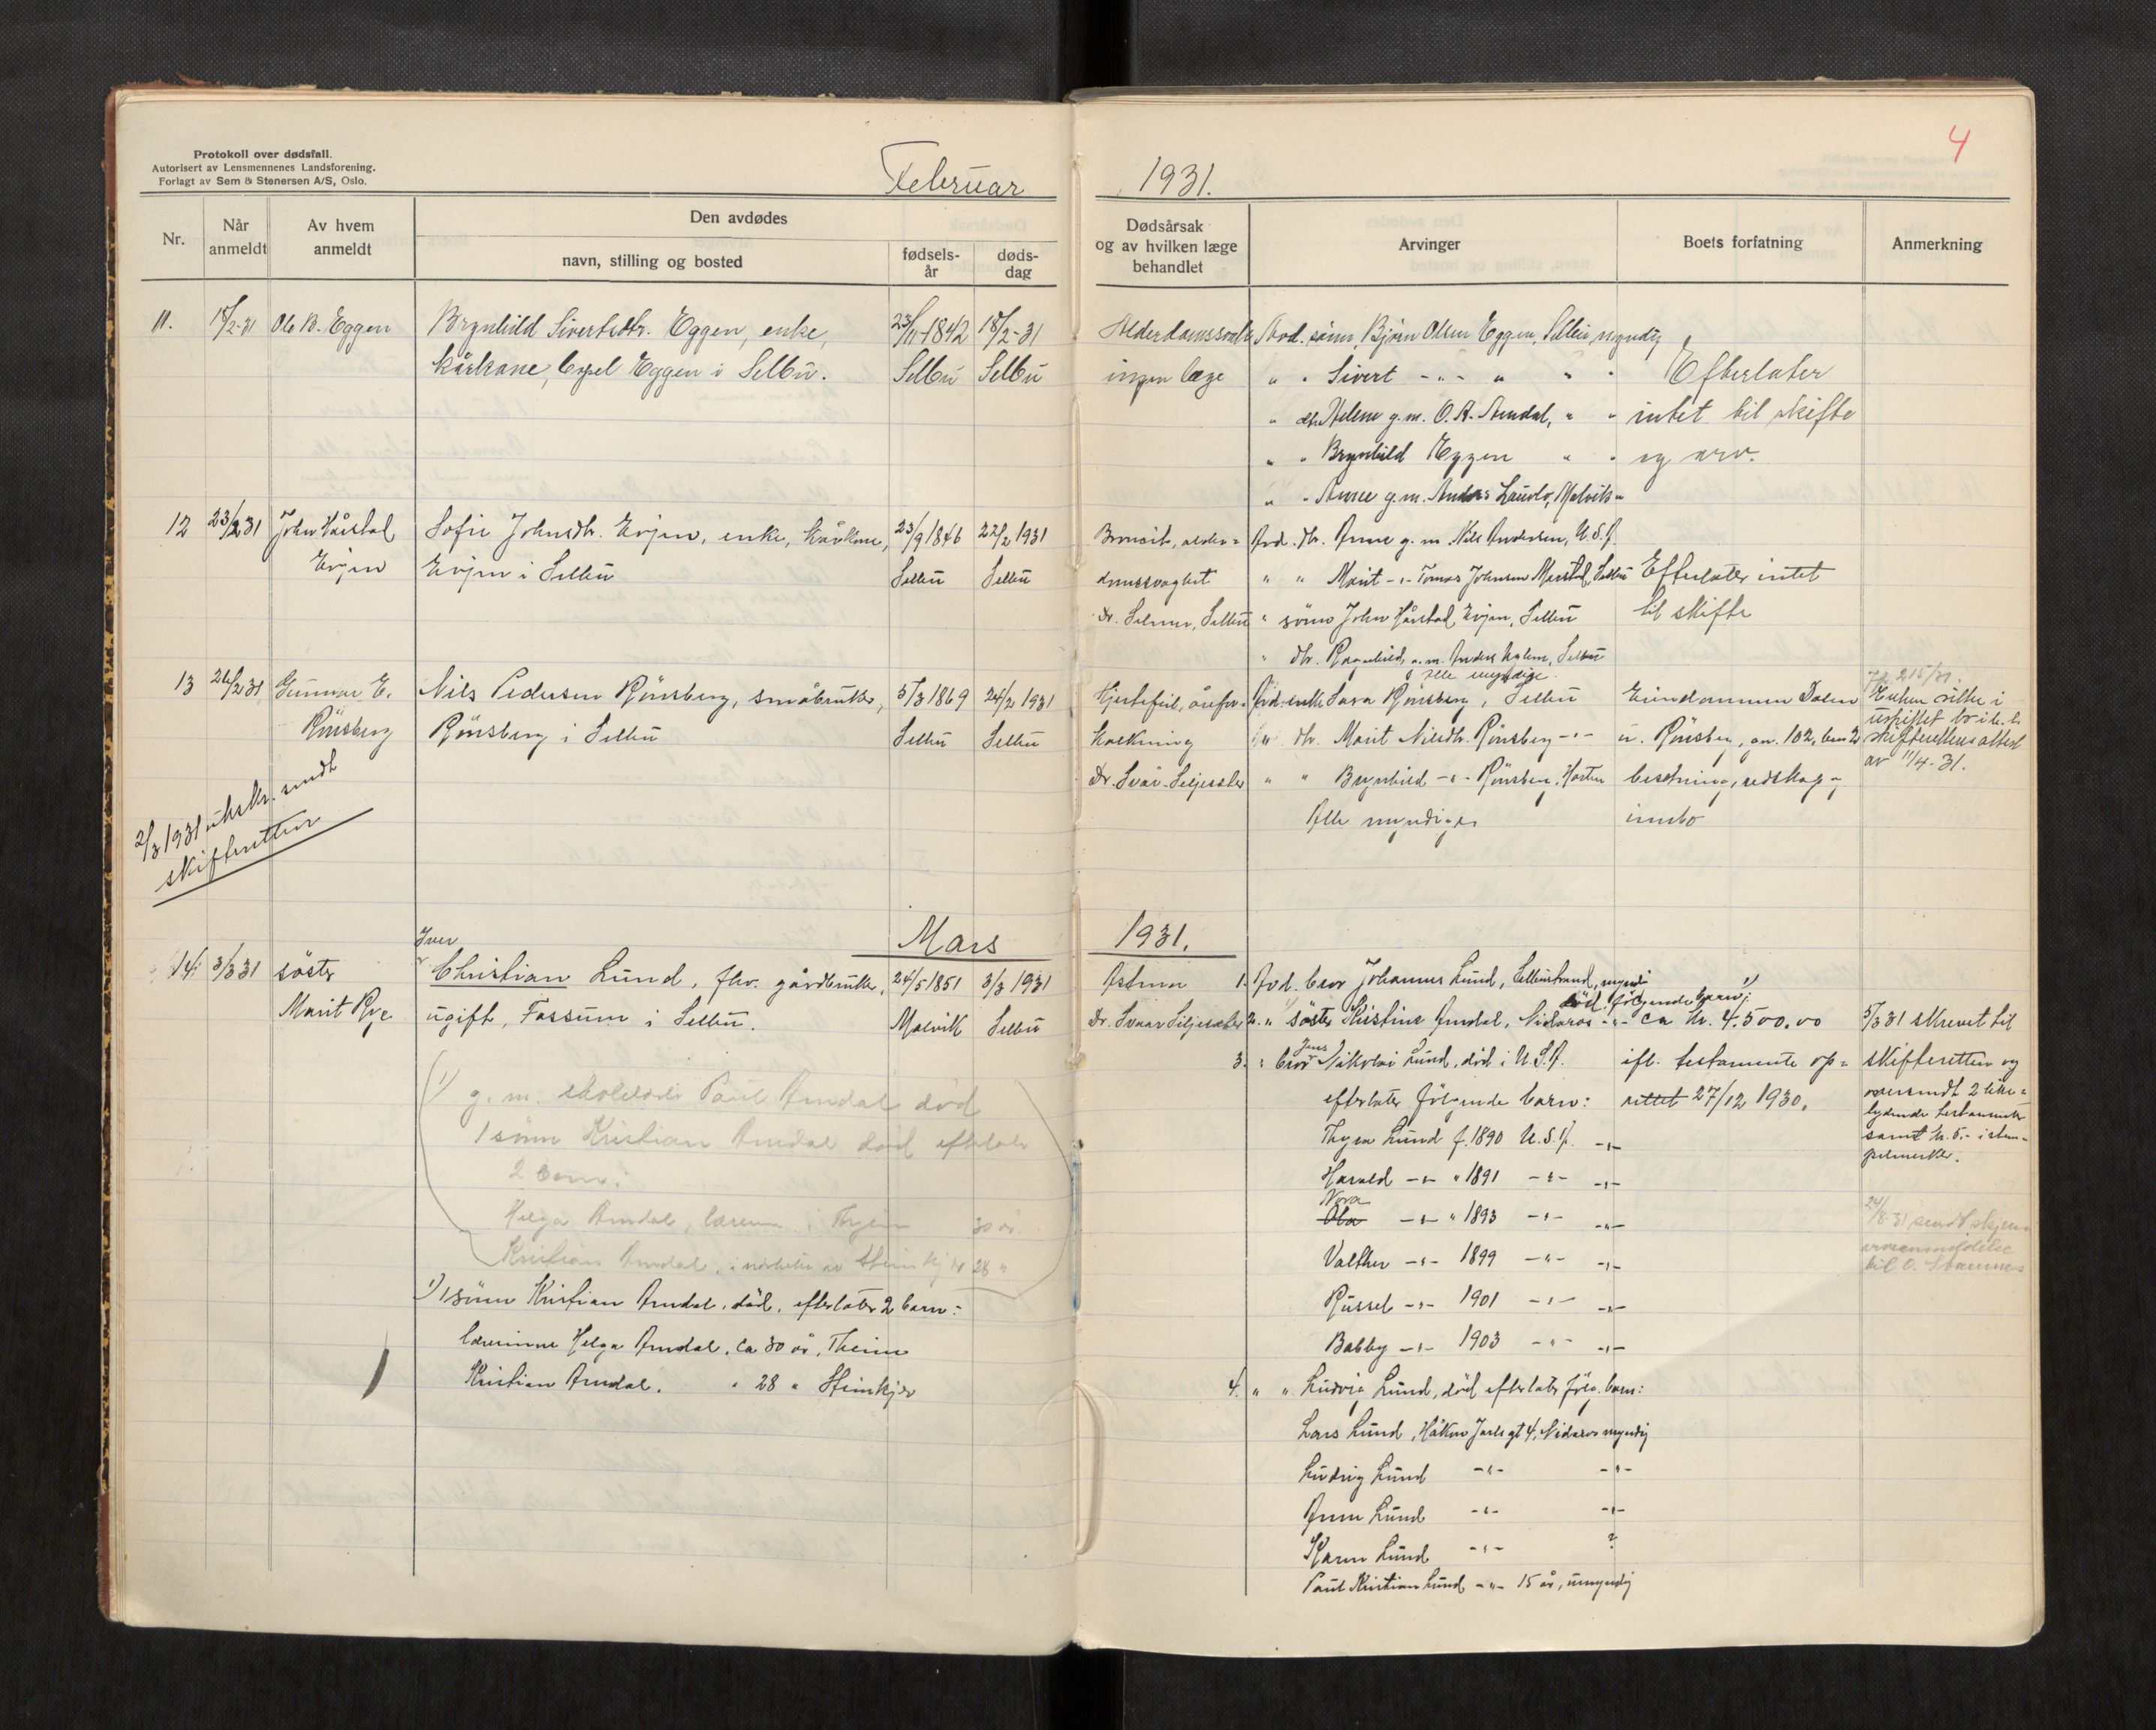 Protokoll over dødsfall.
Autorisert av Lensmennenes Landsforening.
Forlagt av Sem & Stenersen A/S, Oslo.
Februar
1931.
4
Nr.
Når anmeldt
Av hvem anmeldt
Den avdødes
navn, stilling og bosted
fødsels-år
døds-dag
Dødsårsak og av hvilken læge behandlet
Arvinger
Boets forfatning
Anmerkning
11. 18/2-31 Ole B. Eggen
Brynhild Sivertsdtr. Eggen, enke,
kårkone, Eggen i Selbu.
23/11-1842
Selbu
18/2-31
Selbu
Alderdomssvakh
ingen læge
Avd. sønn, Bjørn Olsen Eggen, Selbu myndig
" " Sivert -"- " " "
" dtr. Helene g.m. O. A. Amdal, " "
" " Brynhild Eggen " "
" " Anne g.m. Anders Laudo, Malvik "
Efterlater
intet til skifte
og arv.
12 23/2 31 John Hårstad
Evjen
Sofie Johnsdtr. Evjen, enke, kårkone,
Evjen i Selbu
23/9 1846
Selbu
22/2 1931
Selbu
Broncit, alder=
domssvaghet
Dr. Selmer, Selbu
Avd. dtr. Anne g. m. Nils Andersen, U.S.A.
" " Marit -"- Tomas Johnsen Marstad, Selbu
" sønn John Hårstad Evjen, Selbu
" dtr. Ragnhild g.m. Anders Uglem, Selbu
Alle myndige.
Efterlater intet
til skifte
13 26/2 31 Gunnar E.
Rönsberg
Nils Pedersen Rönsberg, småbruker,
Rönsberg i Selbu
5/3 1869
Selbu
24/2 1931
Selbu
Hjertefeil, årefor=
kalkning
Dr. Svår-Seljesæter
Avd. enke Sara Rönsberg, Selbu
" dtr. Marit Nilsdtr. Rönsberg -"-
" " Brynhild -"- Rönsberg, Horten
Alle myndige
Eiendommen Dalen
u. Rönsberg, gn. 102, bnr. 2
besetning, redskap og
innbo
Jr. 215/31.
Enken sitter i
uskiftet bo i h. t.
skifterettens attest
av 11/4-31.
2/3 1931 utskr. sendt
skifteretten
Mars
1931.
14. 3/3 31 söster
Marit Rye
Iver
Christian Lund, fhv. gårdbruker,
ugift, Fossum i Selbu.
24/5 1851
Malvik
3/3 1931
Selbu
Astma
Dr. Svaar Seljesæter
1. Avd. bror Johannes Lund, Selbustrand, myndig
död. følgende barn: 1)
2. " söster Kristine Amdal, Nidaros -"-
Jens
3. " bror Nikolai Lund, död i U.S.A.
efterlater følgende barn:
Thyra Lund f. 1890 U.S.A. -"-
Harald -"- " 1891 -"- -"-
Nora
Ola -"- " 1893 -"- -"-
Valther -"- 1899 -"- -"-
Russel -"- 1901 -"- -"-
Babby -"- 1903 -"- -"-
4. " " Ludvig Lund, död efterlater følg. barn:
Lars Lund, Håkon Jarls gt 4, Nidaros myndig
Ludvig Lund -"- -"-
Anna Lund -"- -"-
Karen Lund -"- ?
Paul Kristian Lund -"- 15 år, umyndig
ca kr. 4.500,00
ifl. testamente op=
rettet 27/12 1930.
5/3 31 skrevet til
skifteretten og
oversendt 2 like=
lydende testamenter
samt kr. 5,- i stem=
pelmerker.
24/8-31 sendt skjema
arveanmeldelse
til O. Stamnes
1) g. m. Paul Amdal död
1 sönn Kristian Amdal död efterlater
2 barn:
Helga Amdal, lærerinne i Theim 30 år
Kristian Amdal, Steinkjer 28 "
1) 1 sönn Kristian Amdal, död, efterlater 2 barn:
lærerinne Helga Amdal, ca 30 år, Theim
Kristian Amdal, " 28 " Steinkjer